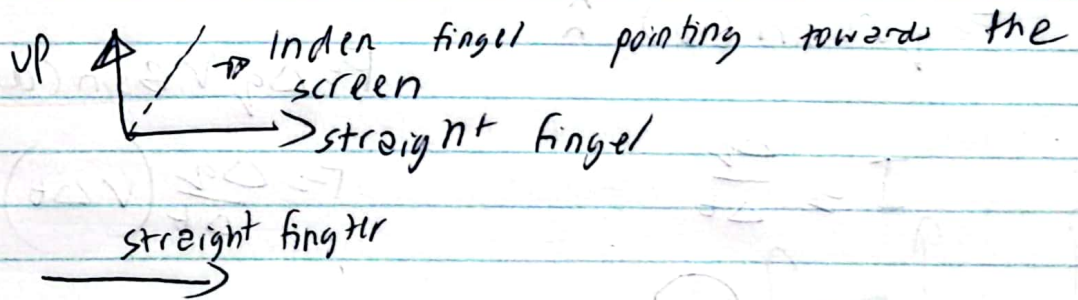 UP Inden fingel pointing towards the
screen
straight fingel
straight fingter